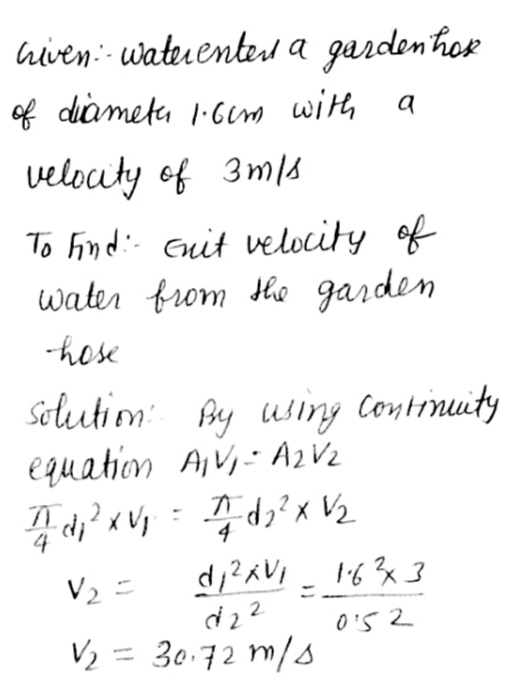 Given:- water enters a garden hose
of diameter 1.6cm with a
velocity of 3m/s
To Find:- Exit velocity of
water from the garden
hose
Solution: By using Continuity
equation A₁V₁ = A₂V₂
π/4 d₁² × V₁ = π/4 d₂² × V₂
V₂ = d₁²×V₁/d₂² = 1.6²×3/0.5²
V₂ = 30.72 m/s